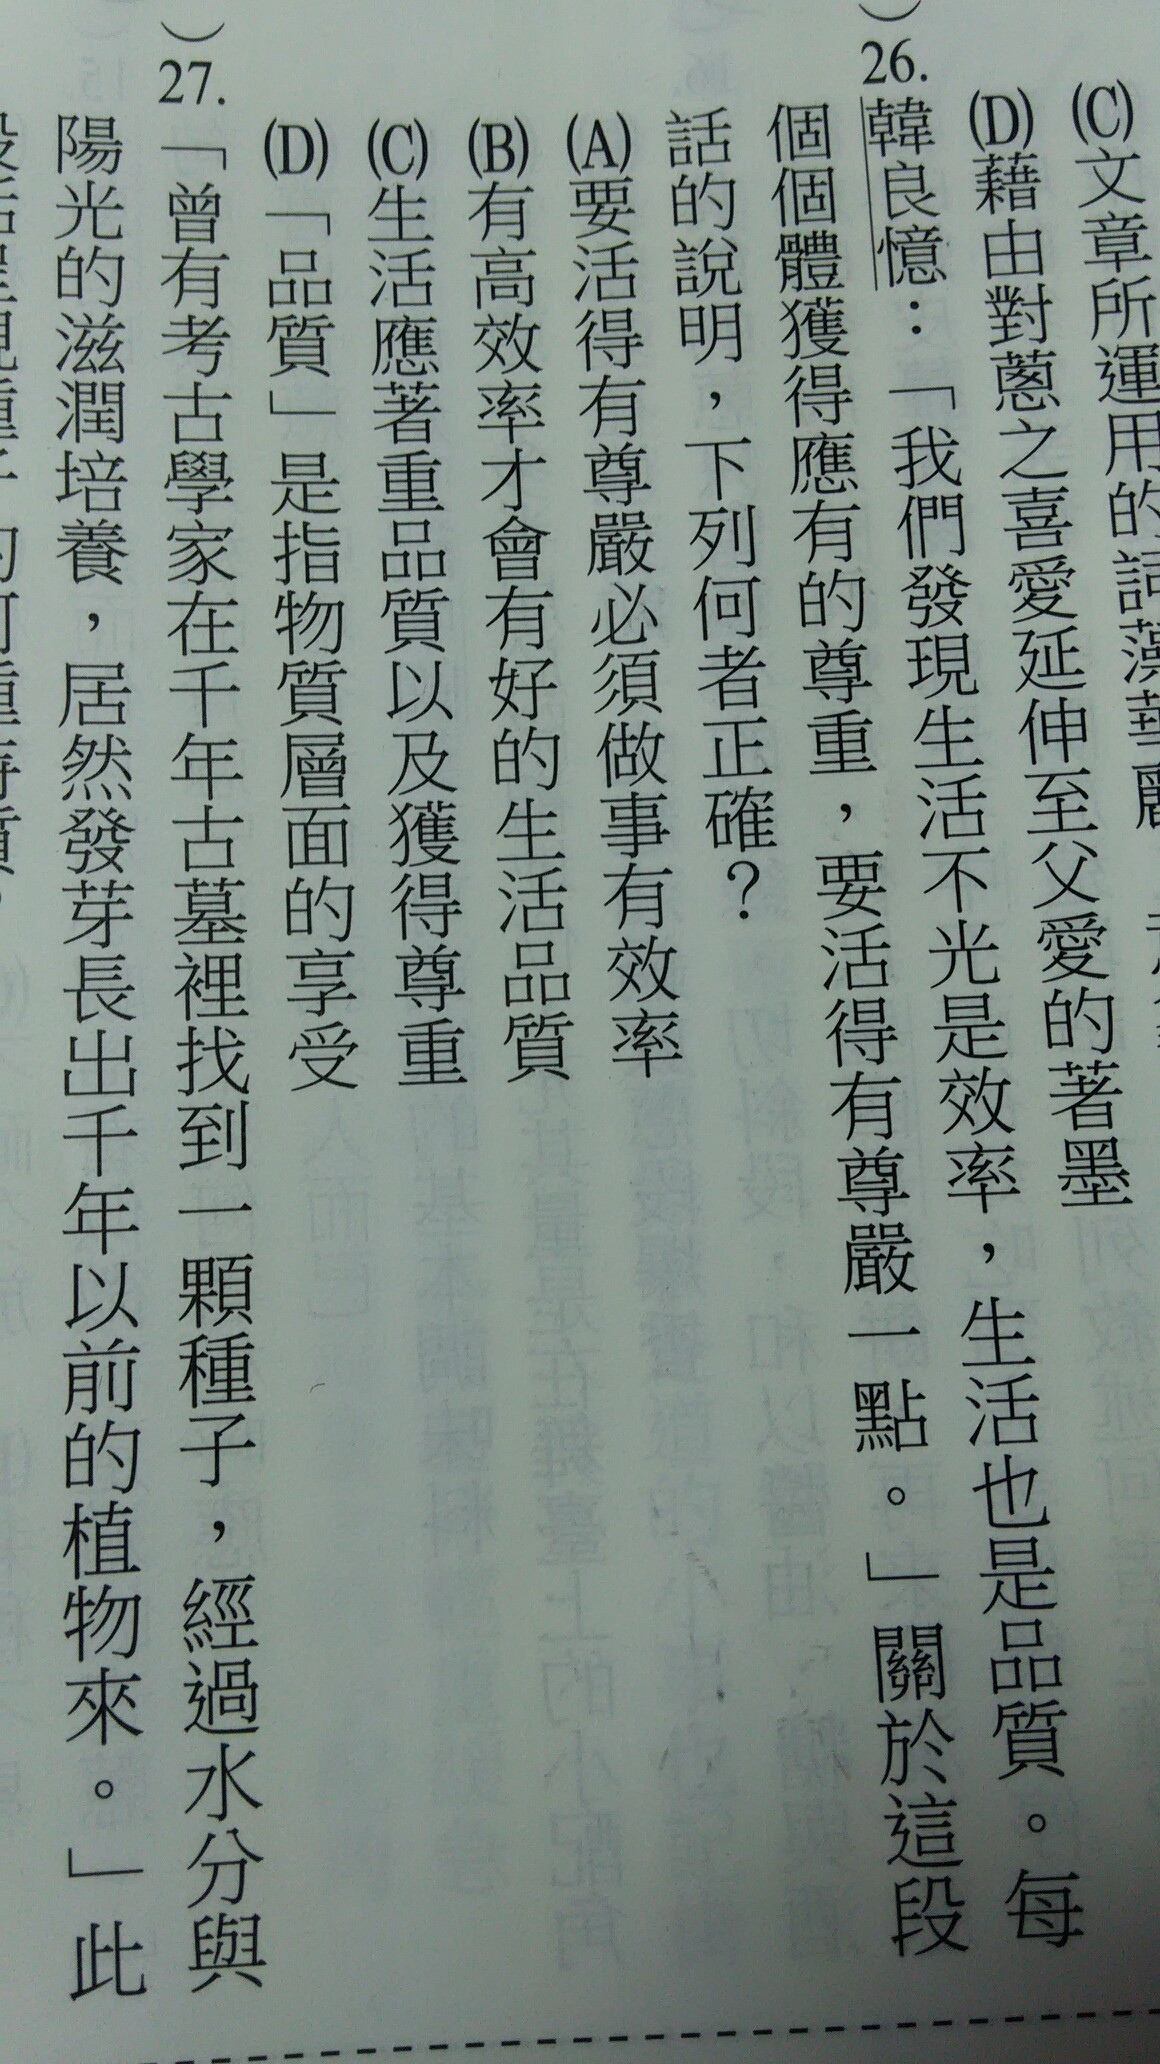 (C)文章所運用的詞藻華麗
(D)藉由對蔥之喜愛延伸至父愛的著墨
)26.韓良憶：「我們發現生活不光是效率，生活也是品質。每
個個體獲得應有的尊重，要活得有尊嚴一點。」關於這段
話的說明，下列何者正確？
(A)要活得有尊嚴必須做事有效率
(B)有高效率才會有好的生活品質
(C)生活應著重品質以及獲得尊重
(D)「品質」是指物質層面的享受
)27.「曾有考古學家在千年古墓裡找到一顆種子，經過水分與
陽光的滋潤培養，居然發芽長出千年以前的植物來。」此